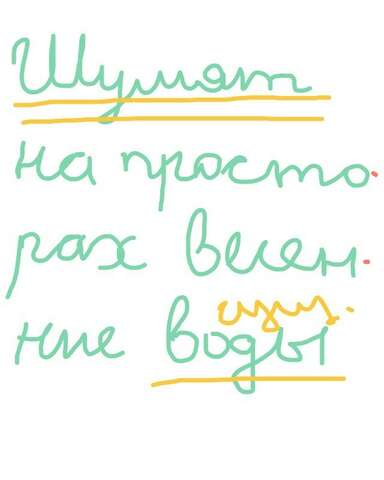 Шумят
на просто-
рах весен-
сущ.
ние воды